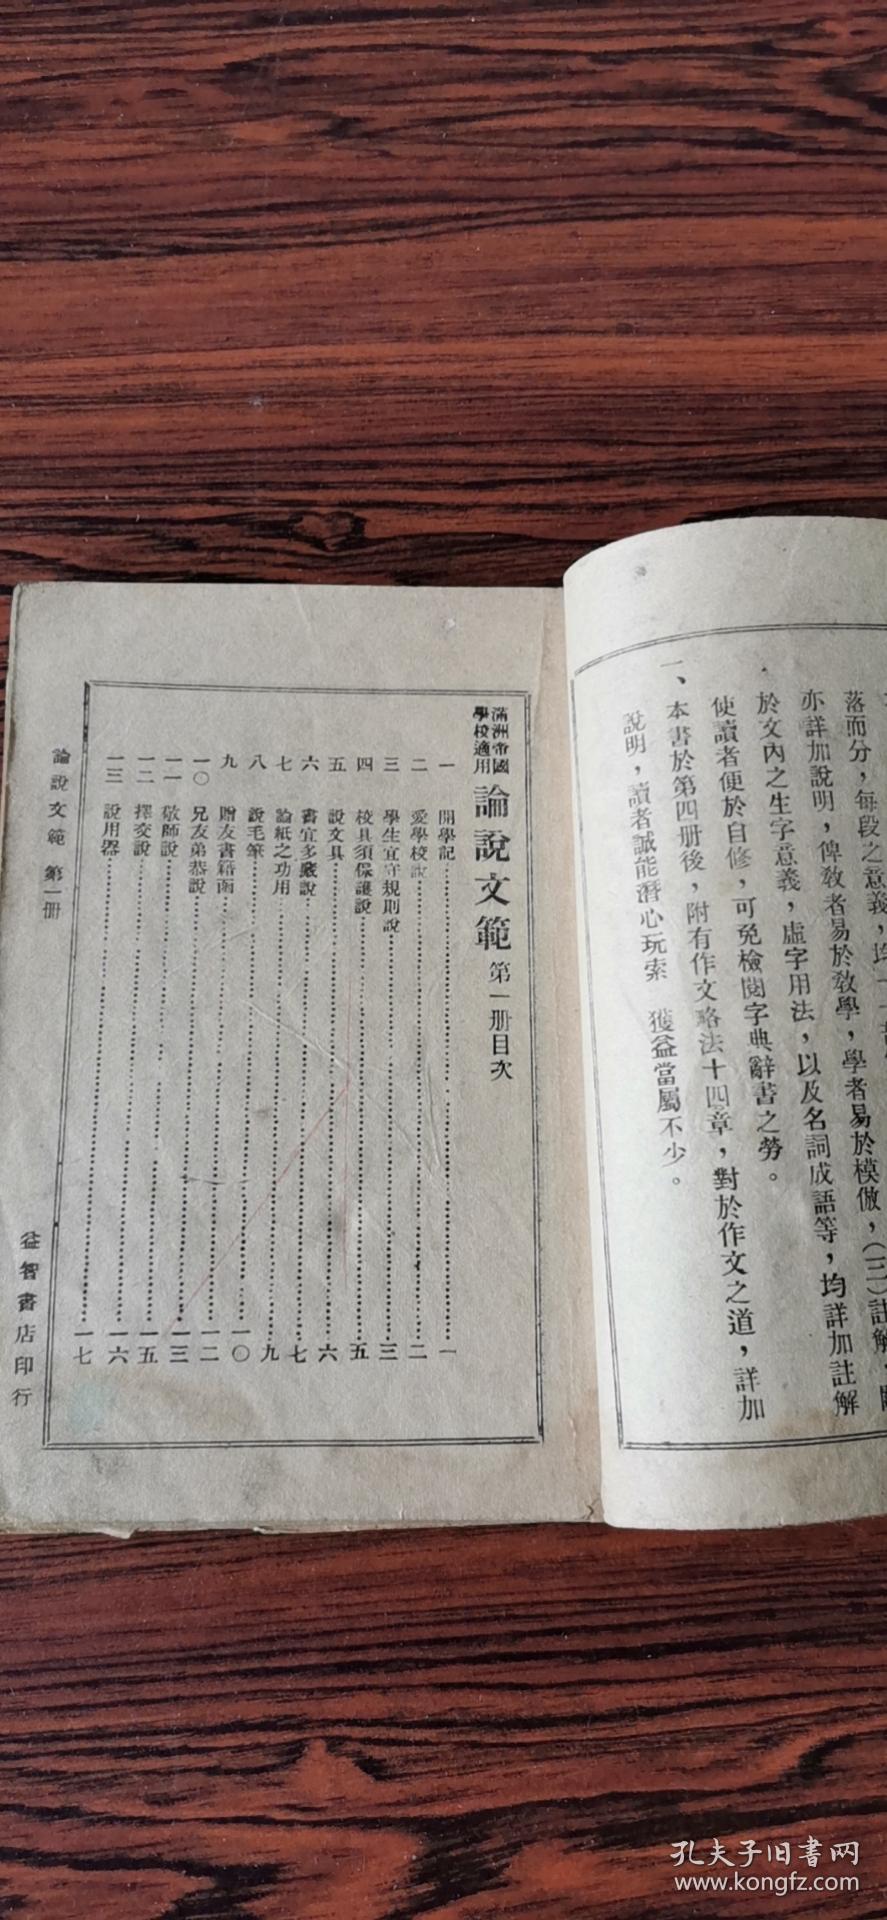 落而分，每段之意義，均
亦詳加說明，俾教者易於教學，學者易於模倣，（三）註解，
於文內之生字意義，虛字用法，以及名詞成語等，均詳加註解
使讀者便於自修，可免檢閱字典辭書之勞。
一、本書於第四册後，附有作文略法十四章，對於作文之道，詳加
說明，讀者誠能潛心玩索　獲益當屬不少。
滿洲帝國
學校適用
論說文範 第一册目次
一 開學記 一
二 愛學校說 二
三 學生宜守規則說 三
四 校具須保護說 五
五 說文具 六
六 書宜多藏說 七
七 論紙之功用 九
八 說毛筆 一〇
九 贈友書籍函 一二
一〇 兄友弟恭說 一三
一一 敬師說 一五
一二 擇交說 一六
一三 說用器 一七
論說文範 第一册
益智書店印行
孔夫子旧書网
www.kongfz.com